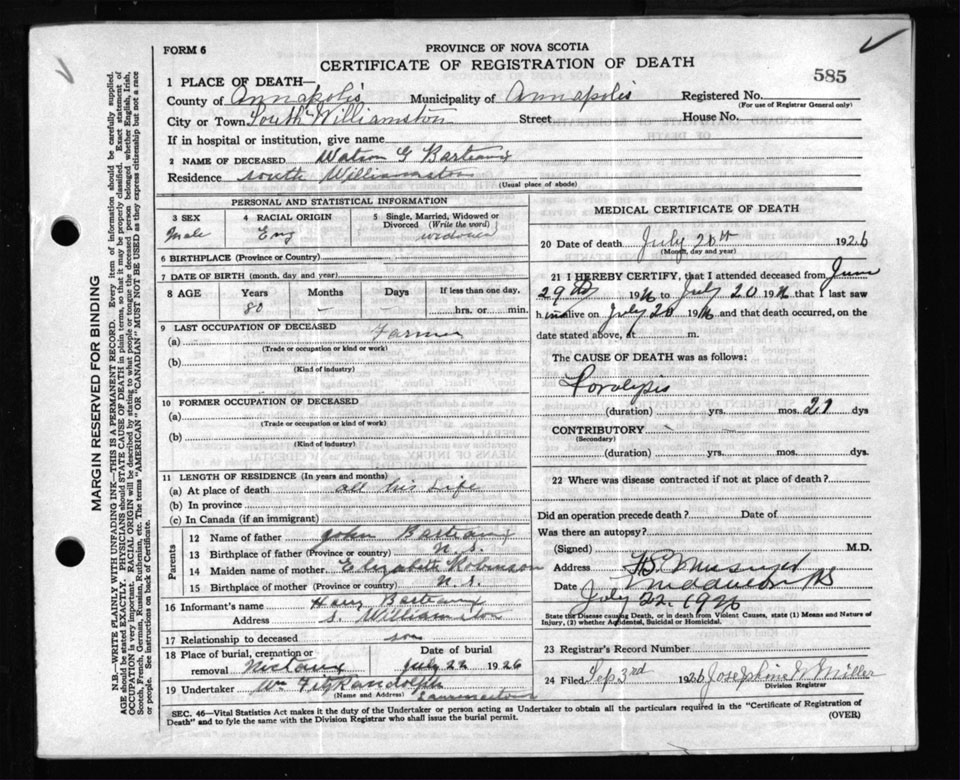 FORM 6
PROVINCE OF NOVA SCOTIA
CERTIFICATE OF REGISTRATION OF DEATH
585
1 PLACE OF DEATH—
County of Annapolis Municipality of Annapolis Registered No.
(For use of Registrar General only)
City or Town South Williamston Street House No.
If in hospital or institution, give name
2 NAME OF DECEASED Watson G Barteaux
Residence South Williamston
(Usual place of abode)
PERSONAL AND STATISTICAL INFORMATION
3 SEX 4 RACIAL ORIGIN 5 Single, Married, Widowed or Divorced (Write the word)
Male Eng widower
6 BIRTHPLACE (Province or Country)
7 DATE OF BIRTH (month, day and year)
8 AGE Years Months Days If less than one day.
80 — — hrs. or min.
9 LAST OCCUPATION OF DECEASED
(a) Farmer
(Trade or occupation or kind or work)
(b)
(Kind of industry)
10 FORMER OCCUPATION OF DECEASED
(a)
(Trade or occupation or kind of work)
(b)
(Kind of industry)
11 LENGTH OF RESIDENCE (In years and months)
(a) At place of death all his life
(b) In province
(c) In Canada (if an immigrant)
Parents
12 Name of father John Barteaux
13 Birthplace of father (Province or country) N.S.
14 Maiden name of mother Elizabeth Robinson
15 Birthplace of mother (Province or country) N.S.
16 Informant's name Harry Barteaux
Address S. Williamston
17 Relationship to deceased son
18 Place of burial, cremation or removal Nictaux
Date of burial July 22 1926
19 Undertaker Wm FitzRandolph
(Name and Address) Lawrencetown
MEDICAL CERTIFICATE OF DEATH
20 Date of death July 20th 1926
(Month, day and year)
21 I HEREBY CERTIFY, that I attended deceased from June
29th 1926 to July 20 1926 that I last saw
him alive on July 20 1926 and that death occurred, on the
date stated above, at m.
The CAUSE OF DEATH was as follows:
Paralysis
(duration) yrs. mos. 21 dys
CONTRIBUTORY —
(Secondary)
(duration) yrs. mos. dys.
22 Where was disease contracted if not at place of death?
Did an operation precede death? Date of
Was there an autopsy?
(Signed) M.D.
Address
Date July 22, 1926
State the Disease causing Death, or in Death from Violent Causes, state (1) Means and Nature of Injury, (2) whether Accidental, Suicidal or Homicidal.
23 Registrar's Record Number
24 Filed Sep 3rd 1926 Josephine Miller
Division Registrar
SEC. 46—Vital Statistics Act makes it the duty of the Undertaker or person acting as Undertaker to obtain all the particulars required in the "Certificate of Registration of
Death" and to fyle the same with the Division Registrar who shall issue the burial permit. (OVER)
MARGIN RESERVED FOR BINDING
N.B.—WRITE PLAINLY WITH UNFADING INK—THIS IS A PERMANENT RECORD. Every item of information should be carefully supplied.
AGE should be stated EXACTLY. PHYSICIANS should STATE CAUSE OF DEATH in plain terms, so that it may be properly classified. Exact statement of
OCCUPATION is very important. RACIAL ORIGIN will be described by stating to what people or tongue the deceased person belonged whether English, Irish,
Scotch, French, German, Russian, Ruthenian, etc. The terms "AMERICAN" OR "CANADIAN" MUST NOT BE USED as they express citizenship but not a race
or people. See instructions on back of Certificate.